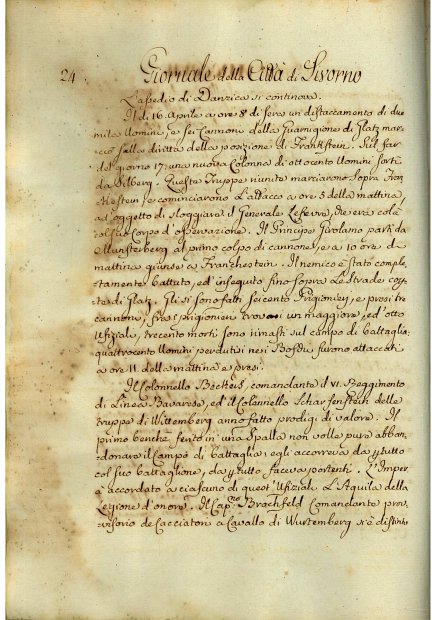 24. Giornale della Città di Livorno
L'assedio di Danzica si continova.
Il dì 16. Aprile a ore 8 di sera un distaccamento di due
mila Uomini, e sei Cannoni della Guarnigione di Glatz mar
ciò sulla diritta della posizione di Frankstein. Sul far
del giorno 17: una nuova Colonna di ottocento Uomini sortì
da Silberg. Queste Truppe riunite marciarono sopra Fran
Kestein, e cominciarono l'attacco a ore 5 della mattina,
ad oggetto di sloggiare il Generale Lefevre, che era colà
col suo Corpo d'osservazione. Il Principe Girolamo partì da
Munsterberg al primo colpo di cannone, e a 10 ore di
mattina giunse a Franchestein. Il nemico è stato comple
tamente battuto, ed inseguito fino sopra le strade cop
te di Glatz. Gli si sono fatti seicento Prigionieri, e presi tre
cannoni, fra i prigionieri trovasi un maggiore, ed otto
Ufiziali, trecento morti sono rimasti sul campo di battaglia:
quattrocento Uomini perduti nei Boschi furono attaccati
a ore 11 della mattina e presi.
Il Colonnello Beckers, comandante il VI. Reggimento
di Linea Bavarese, ed il Colonnello Scharfenstein delle
truppe di Wittemberg anno fatto prodigi di valore. Il
primo benchè ferito in una Spalla non volle pure abban
donare il Campo di battaglia; egli accorreva da p tutto
col suo battaglione, da p tutto faceva portenti. L'Imper
à accordato a ciascuno di quest'Ufiziali L'Aquila della
Legione d'onore. Il Capno Brochfeld Comandante prov
visorio de Cacciatori a Cavallo di Wurtemberg si è distinto